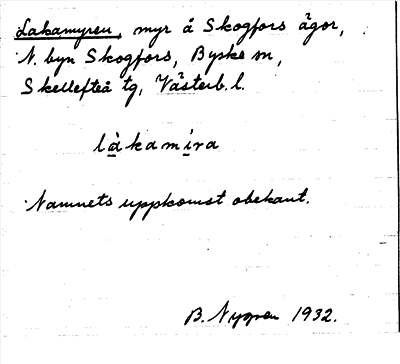 Lakamyren, myr å Skogfors ägor,
N. byn Skogfors, Byske sn,
Skellefteå tg, Västerb. l.
làkamíra
Namnets uppkomst obekant.
B. Nygren 1932.